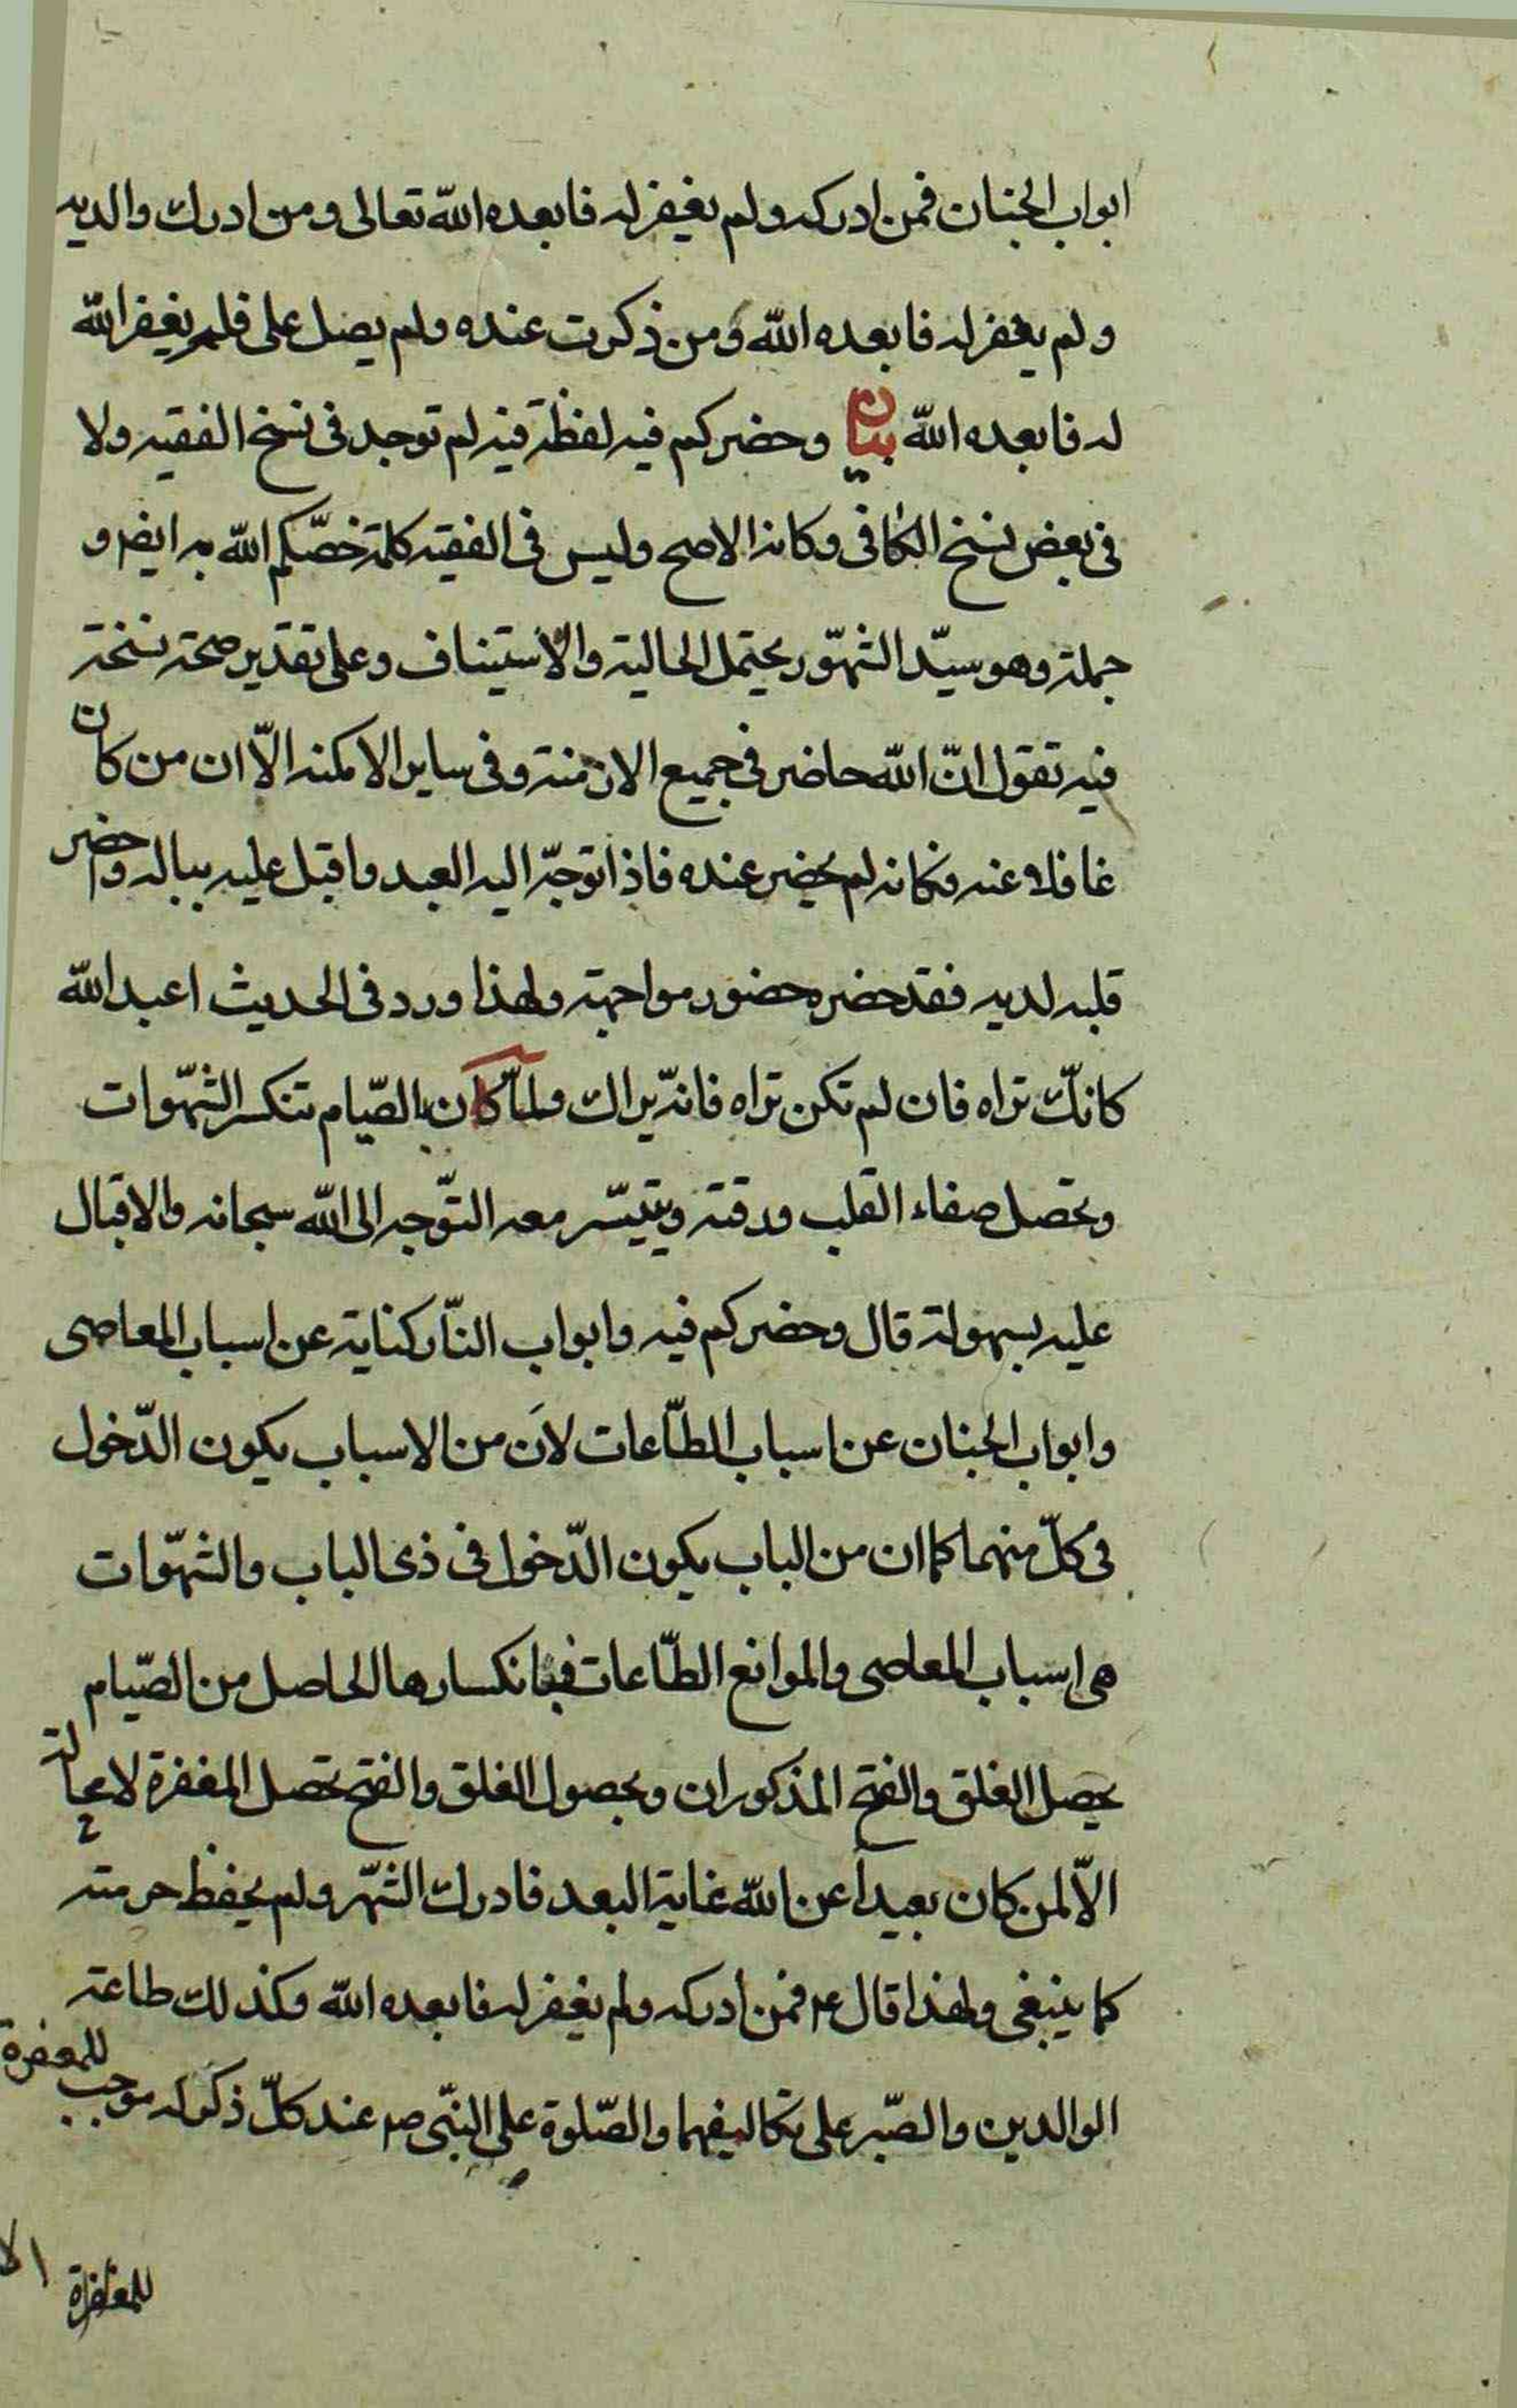 ابواب الجنان فمن ادركه ولم يغفر له فابعده الله تعالى ومن ادرك والديه
ولم يغفر له فابعده الله ومن ذكرت عنده ولم يصل على فلم يغفر الله
له فابعده الله بيان وحضركم فيه لفظة فيه لم توجد فى نسخ الفقيه ولا
فى بعض نسخ الكافى وكانه الاصح وليس فى الفقيه كلمة خصّكم الله به ايضا و
جملة وهو سيّد الشهّور يحتمل الحالية والاستيناف وعلى تقدير صحة نسخة
فيه تقول انّ الله حاضر فى جميع الازمنة وفى ساير الامكنه الاّ ان من كان
غافلا عنه فكانه لم يحضر عنده فاذا توجّه اليه العبد واقبل عليه بباله واحضر
قلبه لديه فقد حضره حضور مواجهة ولهذا ورد فى الحديث اعبد الله
كانّك تراه فان لم تكن تراه فانّه يراك ولمّا كان بالصّيام تنكسر الشهّوات
وتحصل صفاء القلب ورقته ويتيسّر معه التوّجه الى الله سبحانه والاقبال
عليه بسهولة قال وحضركم فيه وابواب النّار كناية عن اسباب المعاصى
وابواب الجنان عن اسباب الطّاعات لان من الاسباب يكون الدّخول
فى كلّ منهما كما ان من الباب يكون الدّخول فى ذى الباب والشهّوات
هى اسباب المعاصى والموانع الطّاعات فبانكسارها الحاصل من الصّيام
يحصل الغلق والفتح المذكوران وبحصول الغلق والفتح تحصل المغفرة لا محالة
الاّ لمن كان بعيداً عن الله غاية البعد فادرك الشهّر ولم يحفظ حرمته
كما ينبغى ولهذا قال ع فمن ادركه ولم يغفر له فابعده الله وكذلك طاعة
الوالدين والصّبر على تكاليفهما والصّلوة على النبّى ص عند كلّ ذكر له موجب للمغفرة
للمغفرة